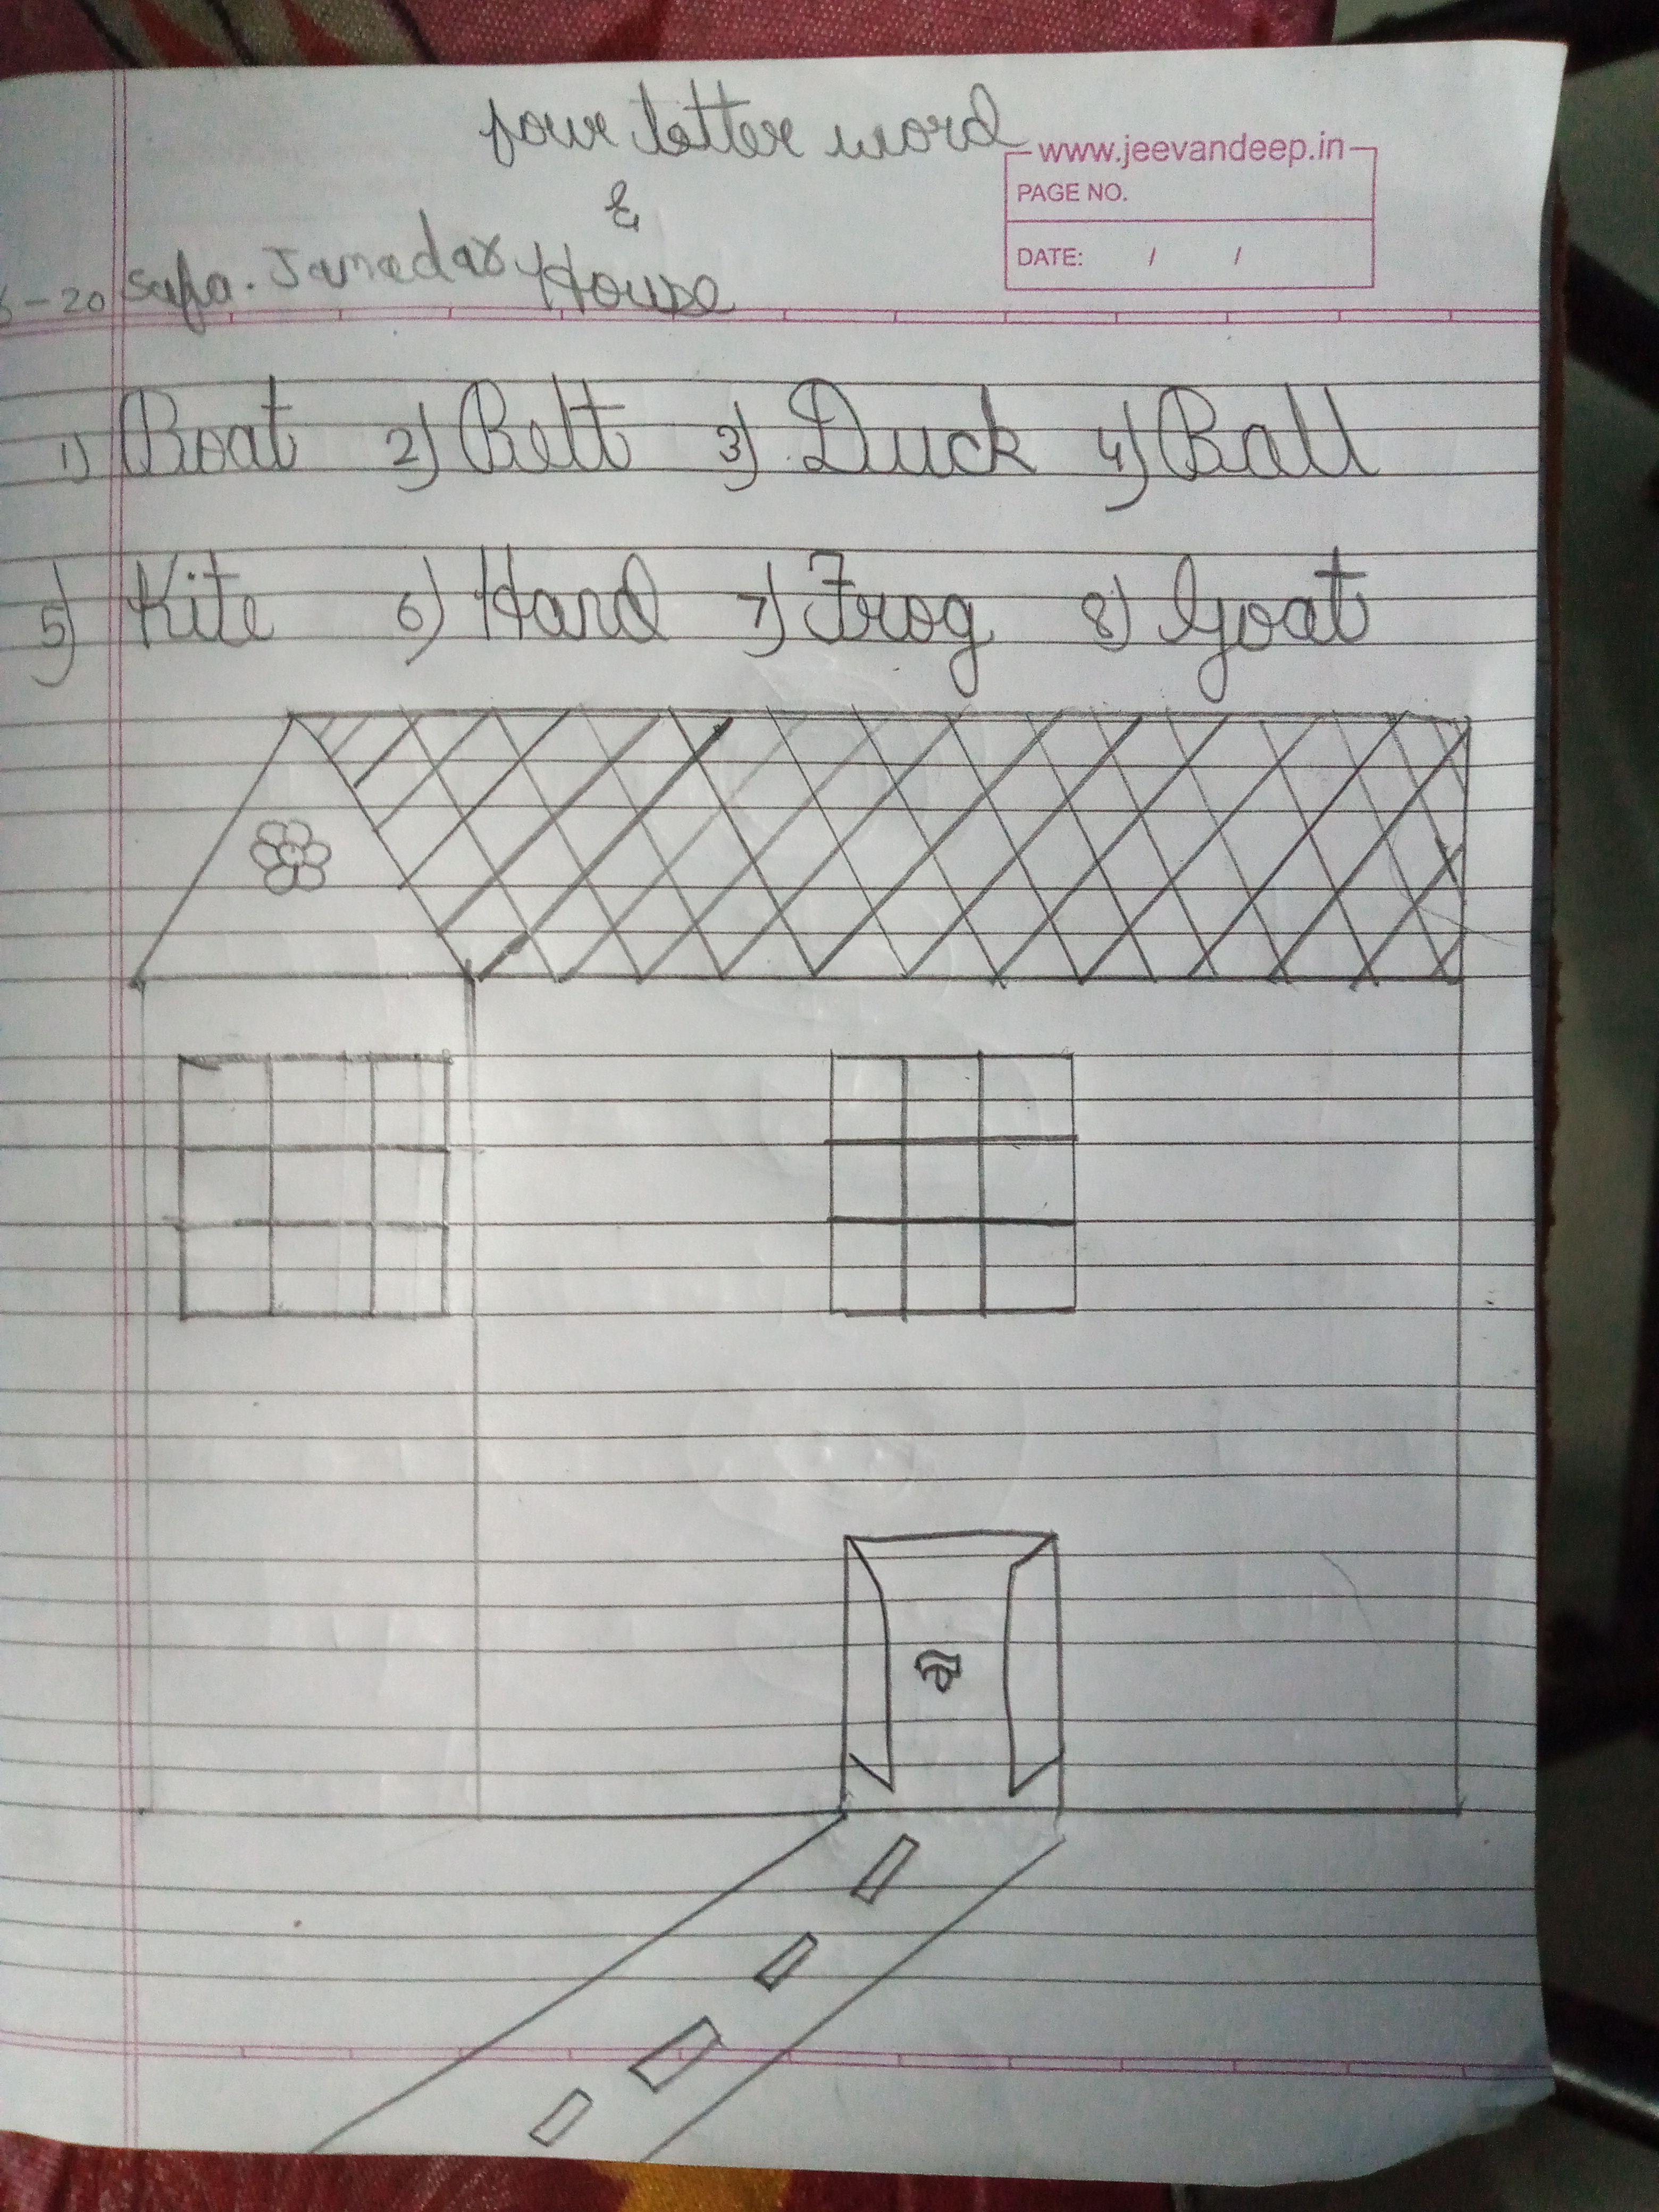 four letter word
www.jeevandeep.in
PAGE NO.
&
DATE: / /
-20 Safa. Jamadar House
1) Boat 2) Belt 3) Duck 4) Ball
5) Kite 6) Hand 7) Frog 8) Goat